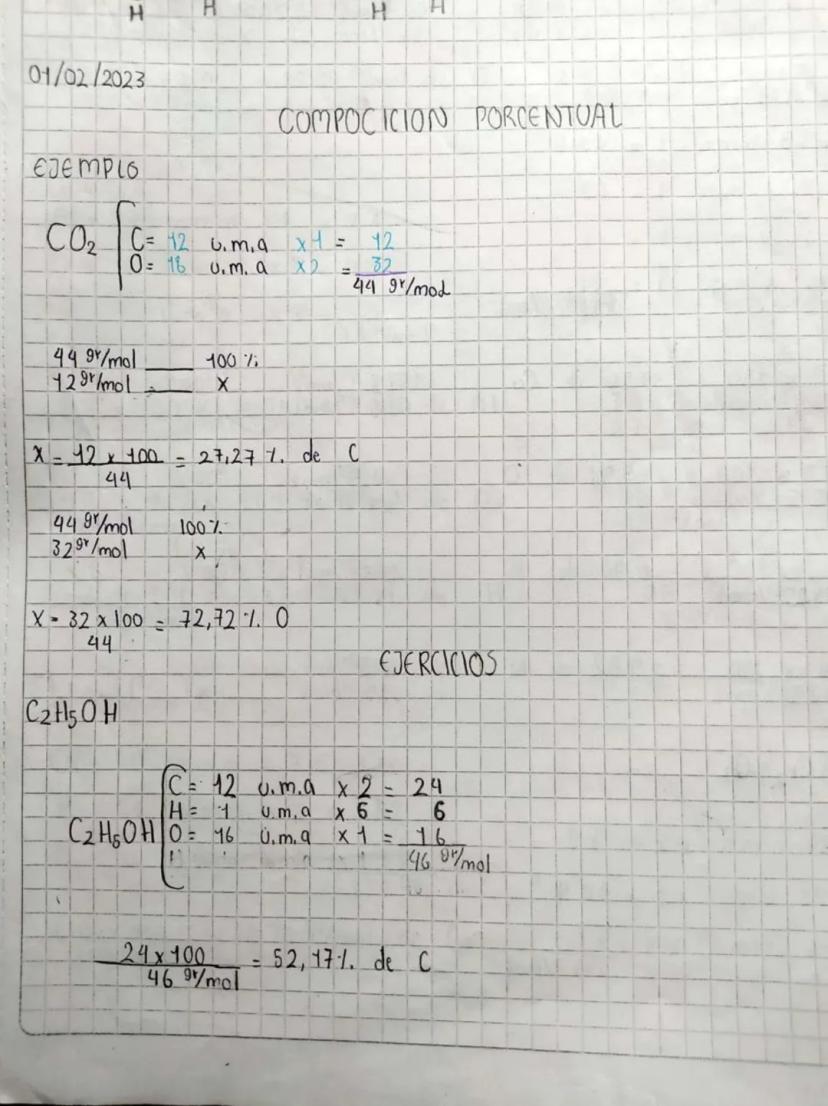 H H H H
01/02/2023
COMPOCICION PORCENTUAL
EJEMPLO
CO₂ C= 12 u.m.a x1 = 12
O= 16 u.m.a x2 = 32
44 gr/mol
44 gr/mol ___ 100 %
12 gr/mol ___ x
X = 12 x 100 = 27,27 %. de C
44
44 gr/mol 100%
32 gr/mol x
X = 32 x 100 = 72,72 %. O
44
EJERCICIOS
C₂H₅OH
C= 12 u.m.a x 2 = 24
H= 1 u.m.a x 6 = 6
C₂H₅OH O= 16 u.m.a x 1 = 16
46 gr/mol
24 x 100 = 52,17%. de C
46 gr/mol